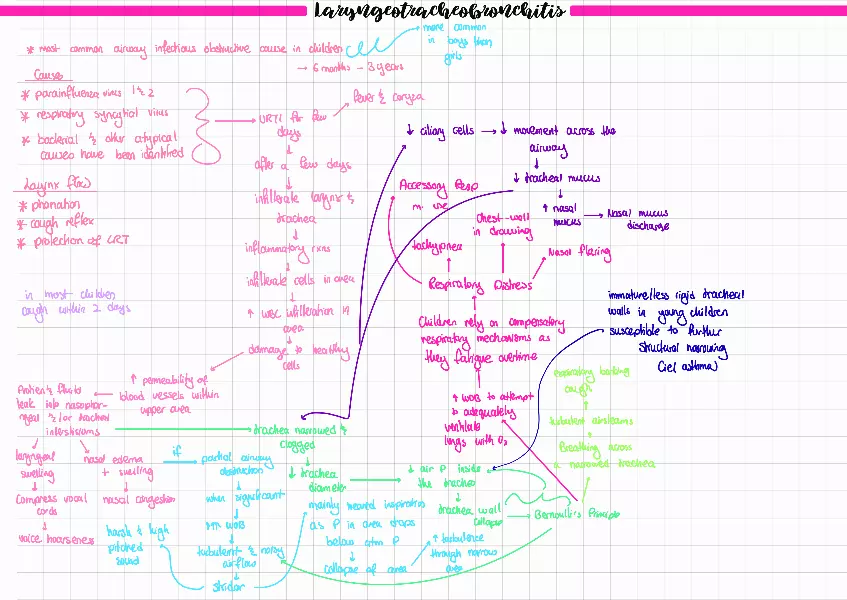 Laryngeotracheobronchitis
* most common airway infectious obstructive cause in children
→ more common
in boys than
girls
→ 6 months - 3 years
Causes
* parainfluenza virus 1 & 2
* respiratory syncytial virus
* bacterial & other atypical
causes have been identified
→ URTI for few
days
fever & coryza
after a few days
infiltrate larynx &
trachea
inflammatory rxns
infiltrate cells in area
↑ WBC infiltration in
area
damage to healthy
cells
Larynx f(x)
* phonation
* cough reflex
* protection of LRT
in most children
cough within 2 days
↑ permeability of
blood vessels within
upper area
leak into nasophar-
ngeal & / or tracheal
interstitiums
laryngeal
swelling
compress vocal
cords
voice hoarseness
nasal edema
+ swelling
nasal congestion
if
partial airway
obstruction
when significant
WOB
turbulent & noisy
airflow
stridor
harsh & high
pitched
sound
mainly heard inspiration
as P in area drops
below atm P
collapse of area
↑ turbulence
through narrow
area
trachea narrowed &
clogged
↓ trachea
diameter
↓ air P inside
the trachea
trachea wall
collapse
→ Bernoulli's Principle
Breathing across
a narrowed trachea
turbulent airstreams
expiratory barking
cough
↓ ciliary cells → ↓ movement across the
airway
↓ tracheal mucus
↑ nasal
mucus
→ Nasal mucus
discharge
Accessory Resp
m. use
tachypnea
Chest-wall
in drawing
Nasal flaring
Respiratory Distress
Children rely on compensatory
respiratory mechanisms as
they fatigue overtime
↑ WOB to attempt
to adequately
ventilate
lungs with O₂
immature/less rigid tracheal
walls in young children
susceptible to further
structural narrowing
(ie! asthma)